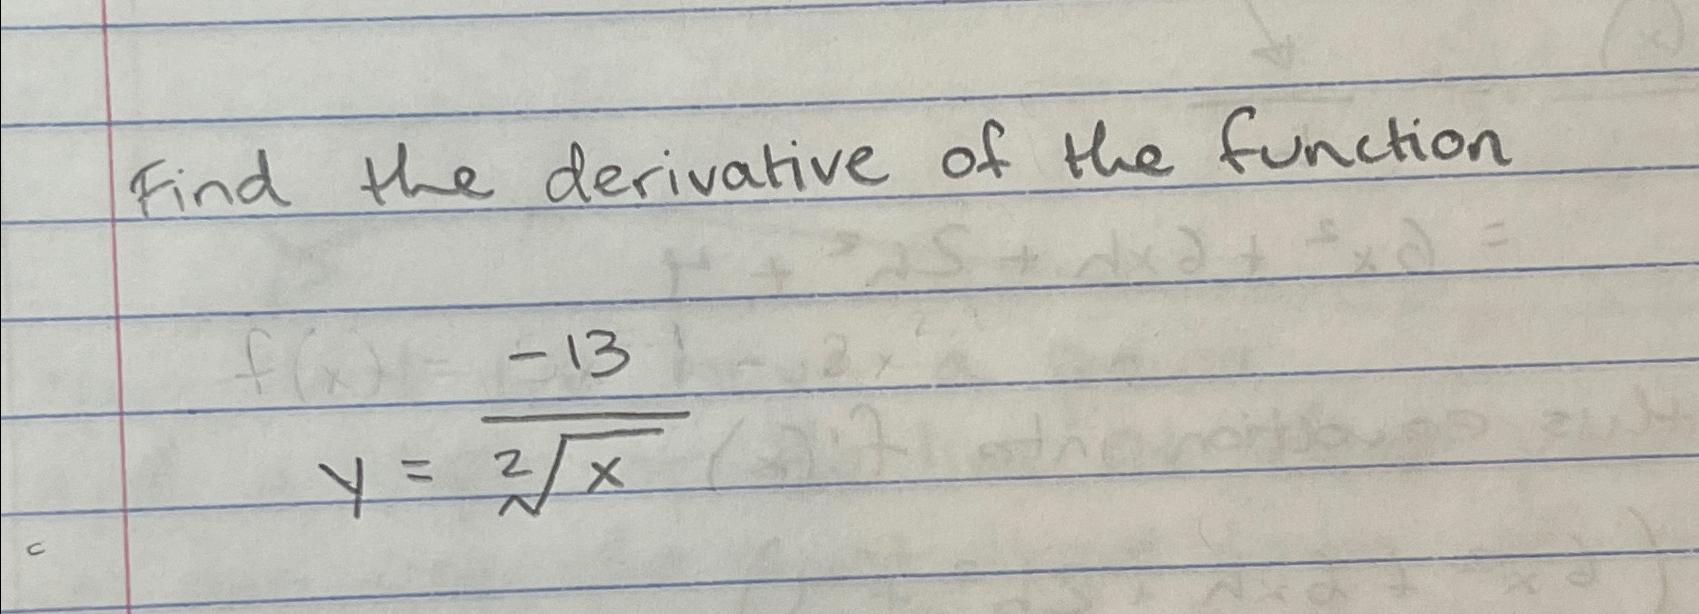 Find the derivative of the function
y = \frac{-13}{\sqrt[2]{x}}